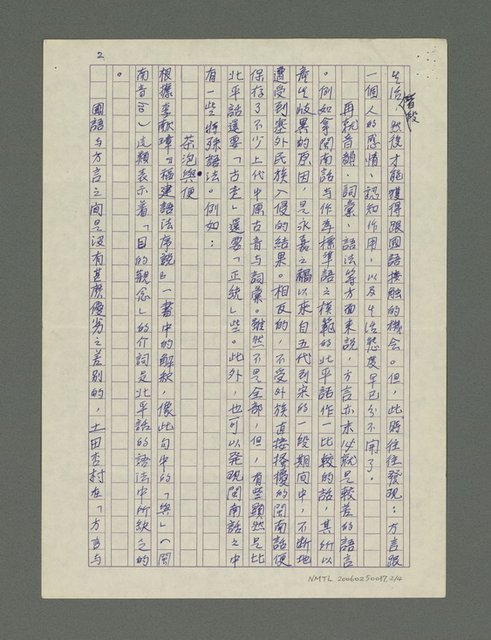 2
階段
生活,然後才能獲得跟國語接觸的機會。但,此時往往發現:方言跟
一個人的感情、認知作用,以及生活態度早已分不開了。
再就音韻、詞彙、語法等方面來說,方言亦未必就是較差的語言
。例如拿閩南話与作為標準語之模範的北平話作一比較的話,其所以
產生歧異的原因,是永嘉之禍以來自五代到宋的一段期间中,不斷地
遭受到塞外民族入侵的結果。相反的,不受外族直接擾的閩南話便
保存了不少上代中原古音与詞彙。雖然不是全部,但,有些顯然是比
北平話還要「古老」還要「正統」些。此外,也可以發現閩南話之中
有一些特殊語法。例如:
茶泡與便
根據李献璋『福建語法序說』一書中的解釈,像此句中的「與」(閩
南音 ),這類表示着「目的觀念」的介詞是北平話的語法中所缺乏的
。
國語与方言之间是没有甚麽優劣之差別的,土田杏村在「方言与
NMTL 20060250097 2/4